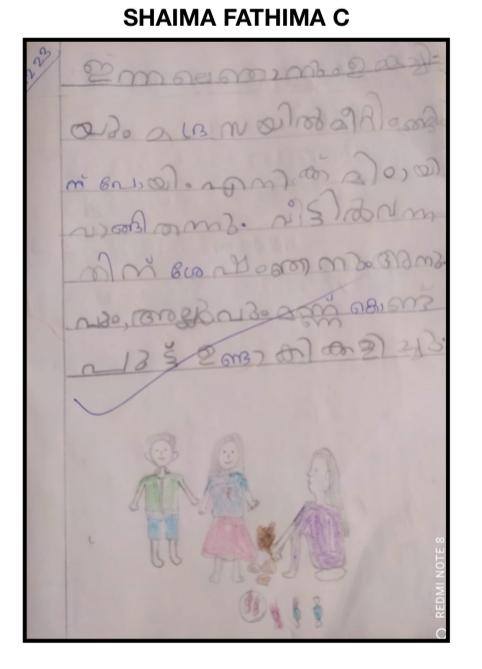 SHAIMA FATHIMA C
2.23
ഇന്നലെഞാനുംഉമ്മച്ചി
യും മദ്രസയിൽമീറ്റിങ്ങി
ന് പോയി. എനിക്ക് മിഠായി
വാങ്ങിതന്നു. വീട്ടിൽവന്ന
തിന് ശേഷംഞാനുംഅനു
പും, മണ്ണ് കൊണ്ട്
പുട്ട് ഉണ്ടാക്കി കളിച്ചു.
REDMI NOTE 8